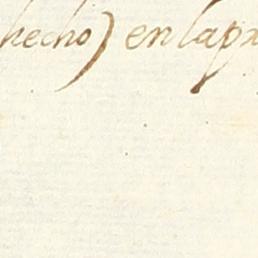 hecho) en la px